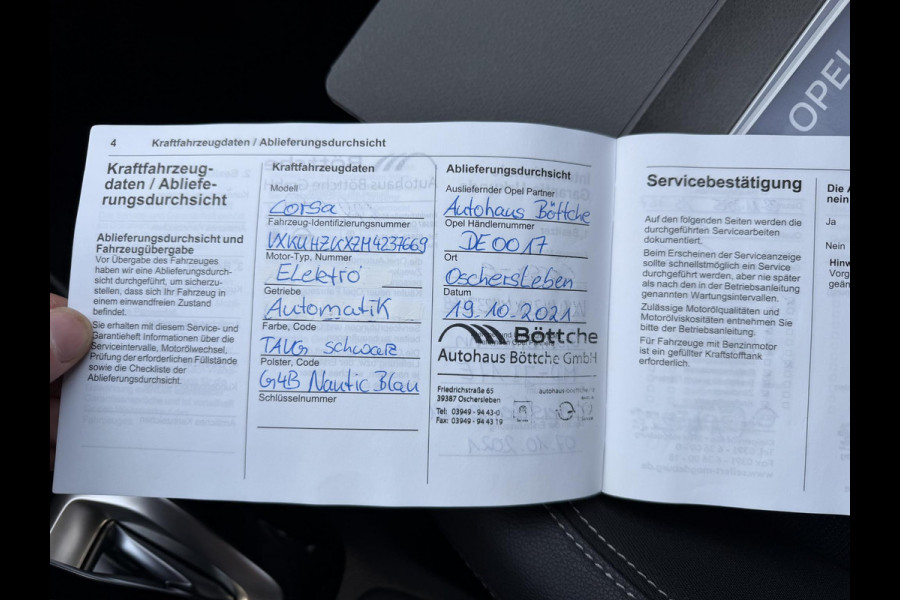 4 Kraftfahrzeugdaten / Ablieferungsdurchsicht
Kraftfahrzeug-
daten / Abliefe-
rungsdurchsicht
Ablieferungsdurchsicht und
Fahrzeugübergabe
Vor Übergabe des Fahrzeuges
haben wir eine Ablieferungsdurch-
sicht durchgeführt, um sicherzu-
stellen, dass sich Ihr Fahrzeug in
einem einwandfreien Zustand
befindet.
Sie erhalten mit diesem Service- und
Garantieheft Informationen über die
Serviceintervalle, Motorölwechsel,
Prüfung der erforderlichen Füllstände
sowie die Checkliste der
Ablieferungsdurchsicht.
Kraftfahrzeugdaten
Modell
Corsa
Fahrzeug-Identifizierungsnummer
VXKUHZKXZM4237669
Motor-Typ, Nummer
Elektro
Getriebe
Automatik
Farbe, Code
TAUG schwarz
Polster, Code
G4B Nautic Blau
Schlüsselnummer
Ablieferungsdurchsicht
Ausliefernder Opel Partner
Autohaus Böttche
Opel Händlernummer
DE0017
Ort
Oschersleben
Datum
19.10.2021
Böttche
Autohaus Böttche GmbH
Friedrichstraße 65
39387 Oschersleben
Tel: 03949 - 94 43-0
Fax: 03949 - 94 43 19
Servicebestätigung
Auf den folgenden Seiten werden die
durchgeführten Servicearbeiten
dokumentiert.
Beim Erscheinen der Serviceanzeige
sollte schnellstmöglich ein Service
durchgeführt werden, aber nie später
als nach den in der Betriebsanleitung
genannten Wartungsintervallen.
Zulässige Motorölqualitäten und
Motorölviskositäten entnehmen Sie
bitte der Betriebsanleitung.
Für Fahrzeuge mit Benzinmotor
ist ein gefüllter Kraftstofftank
erforderlich.
Die A
nein
Ja
Nein
Hinw
Vorg
geän
OPEL